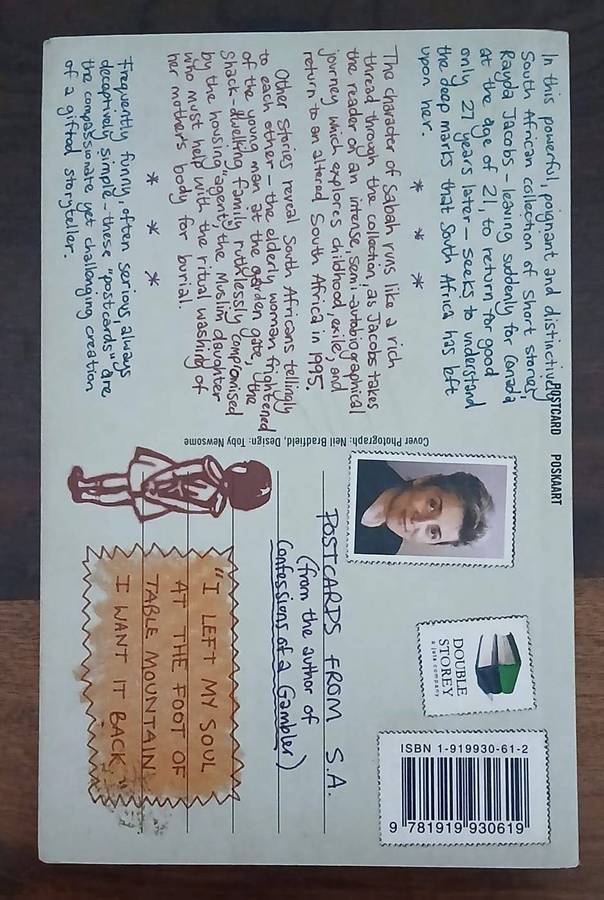 In this powerful, poignant and distinctively
South African collection of short stories,
Rayda Jacobs - leaving suddenly for Canada
at the age of 21, to return for good
only 27 years later - seeks to understand
the deep marks that South Africa has left
upon her.
* * *
The character of Sabah runs like a rich
thread through the collection, as Jacobs takes
the reader on an intense, semi-autobiographical
journey which explores childhood, exile, and
return to an altered South Africa in 1995.
Other stories reveal South Africans tellingly
to each other - the elderly woman frightened
of the young man at the garden gate, the
shack-dwelling family ruthlessly compromised
by the housing "agent", the Muslim daughter
who must help with the ritual washing of
her mother's body for burial.
* * *
Frequently funny, often serious, always
deceptively simple - these "postcards" are
the compassionate yet challenging creation
of a gifted storyteller.
POSTCARD POSKAART
Cover Photograph: Neil Bradfield, Design: Toby Newsome
DOUBLE
STOREY
a juta company
POSTCARDS FROM S.A.
(from the author of
Confessions of a Gambler)
"I LEFT MY SOUL
AT THE FOOT OF
TABLE MOUNTAIN
I WANT IT BACK."
ISBN 1-919930-61-2
9 781919 930619